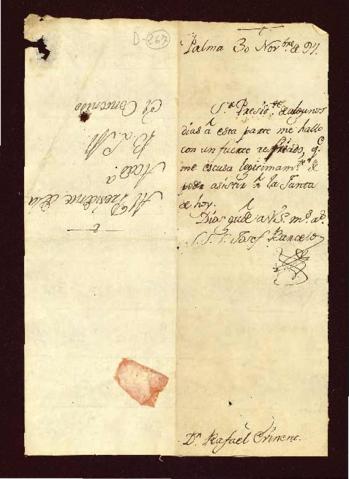 D-267
Palma 30 Nov.bre de 97.
S.r Presid.te de algunos
dias à esta parte me hallo
con un fuerte resfriado, q.e
me escusa legitimam.te de
poder asistir à la Junta
de hoy.
Dios gu.e à V.S. m.s a.s
Josef Barcelo
D.n Rafael
Al Presidente de la
Acad.a
B. L. M.
El Contenido